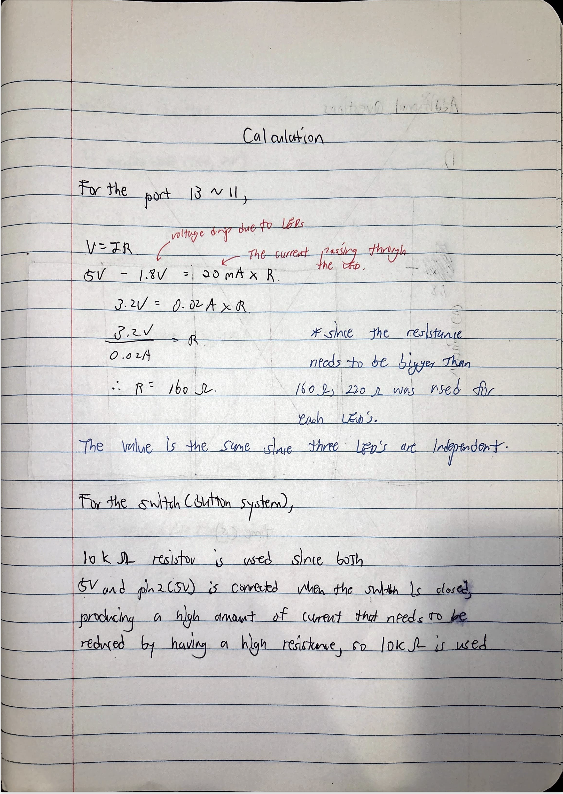 Calculation
For the port 13 ~ 11,
voltage drop due to LEDs
V = IR
The current passing through
the LED.
5V - 1.8V = 20 mA x R
3.2V = 0.02A x R
3.2V
= R
0.02A
* since the resistance
needs to be bigger than
∴ R = 160 Ω.
160 Ω, 220 Ω was used for
each LED's.
The value is the same since three LED's are independent.
For the switch (button system),
10k Ω resistor is used since both
5V and pin2(5V) is connected when the switch is closed,
producing a high amount of current that needs to be
reduced by having a high resistance, so 10k Ω is used